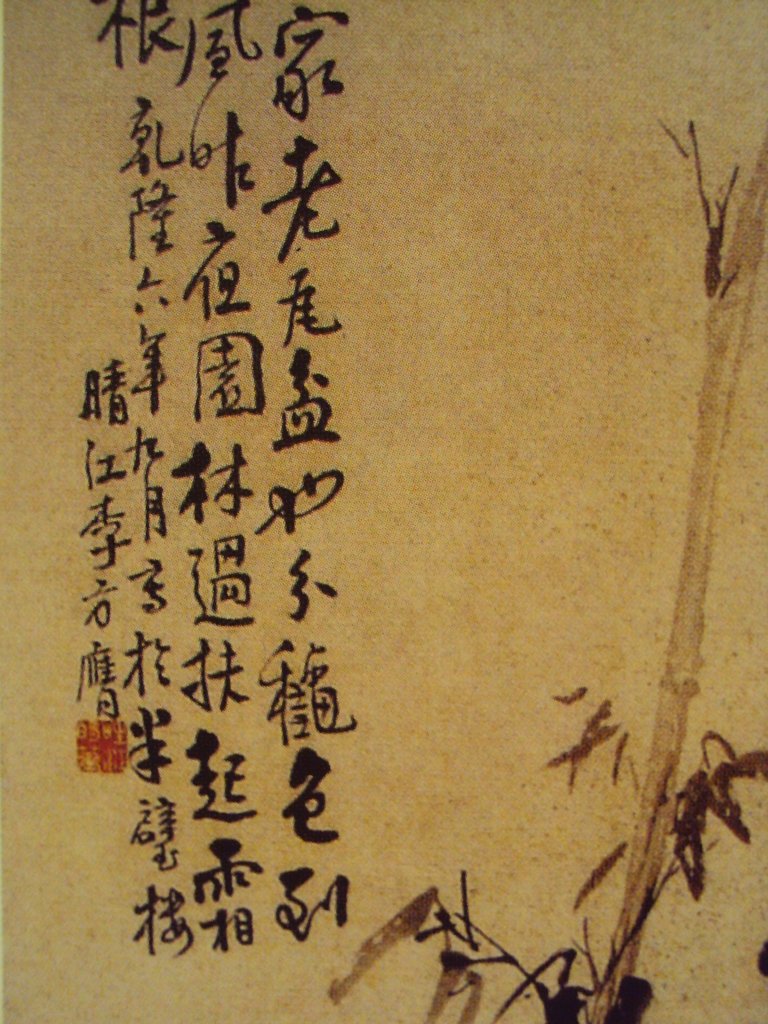 家老瓦盆也分龝色到
風昨夜園林過扶起霜
根 乾隆六年九月寫於半璧楼
晴江李方膺